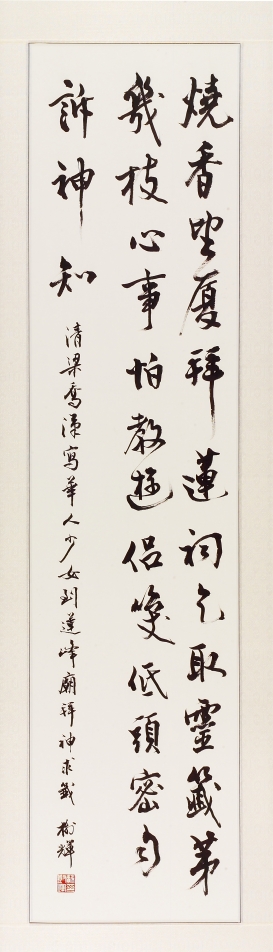 燒香望廈拜蓮祠乞取靈籤第
幾枝心事怕教遊侶咲低頭密自
訴神知
清梁喬漢寫華人少女到蓮峰廟拜神求籤 樹輝